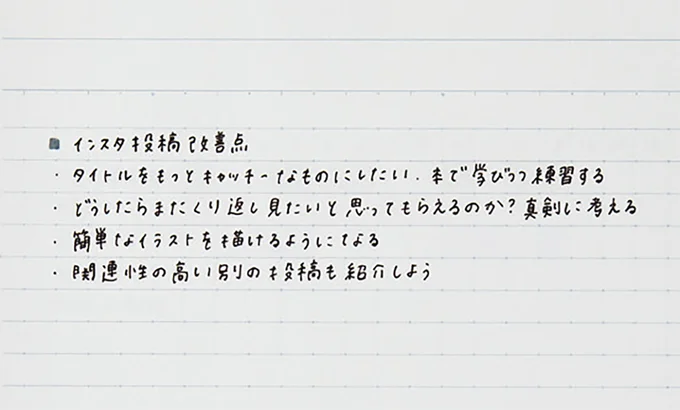 ■ インスタ投稿改善点
・タイトルをもっとキャッチーなものにしたい．本で学びつつ練習する
・どうしたらまたくり返し見たいと思ってもらえるのか？真剣に考える
・簡単なイラストを描けるようになる
・関連性の高い別の投稿も紹介しよう